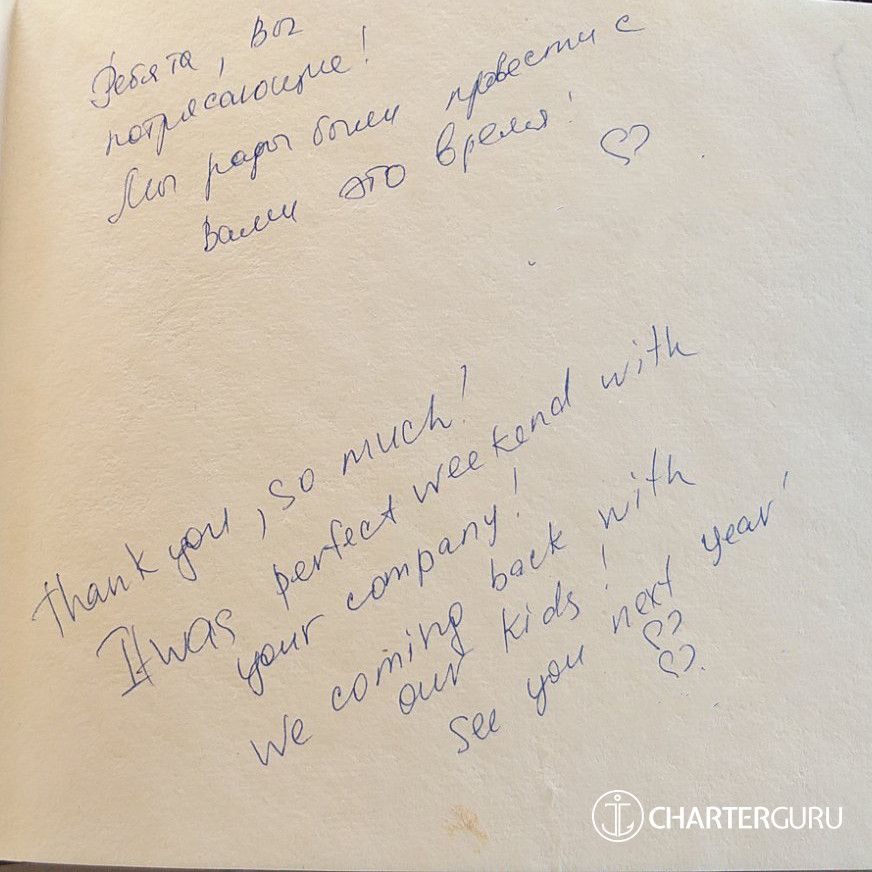 Ребята, вы
потрясающие!
Мы рады были провести с
вами это время!
Thank you, so much!
It was perfect weekend with
your company!
We coming back with
our kids!
See you next year!
CHARTERGURU